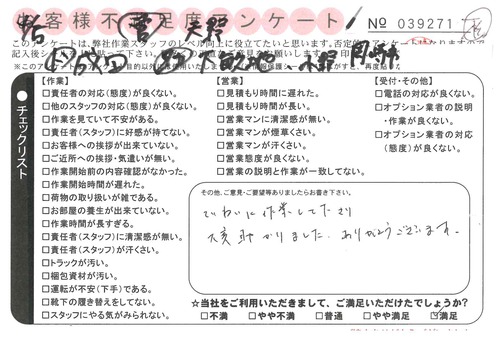 お客様不満足度アンケート
No 039271
このアンケートは、弊社作業スタッフのレベル向上に役立てたいと思います。
【作業】
□責任者の対応(態度)が良くない。
□他のスタッフの対応(態度)が良くない。
□作業を見ていて不安がある。
□責任者(スタッフ)に好感が持てない。
□お客様への挨拶が出来ていない。
□ご近所への挨拶・気遣いが無い。
□作業開始前の内容確認がなかった。
□作業開始時間が遅れた。
□荷物の取り扱いが雑である。
□お部屋の養生が出来ていない。
□作業時間が長すぎる。
□責任者(スタッフ)に清潔感が無い。
□責任者(スタッフ)が汗くさい。
□トラックが汚い。
□梱包資材が汚い。
□運転が不安(下手)である。
□靴下の履き替えをしてない。
□スタッフにやる気がみられない。
【営業】
□見積もり時間に遅れた。
□見積もり時間が長い。
□営業マンに清潔感が無い。
□営業マンが煙草くさい。
□営業マンが汗くさい。
□営業態度が良くない。
□営業の説明と作業が一致してない。
【受付・その他】
□電話の対応が良くない。
□オプション業者の説明
・作業が良くない。
□オプション業者の対応
(態度)が良くない。
●チェックリスト
その他、ご意見・ご要望等ありましたらお書き下さい。
ていねいに作業して下さり
大変助かりました。ありがとうございます。
☆当社をご利用いただきまして、ご満足いただけたでしょうか?
□不満 □やや不満 □普通 □やや満足 ☑満足